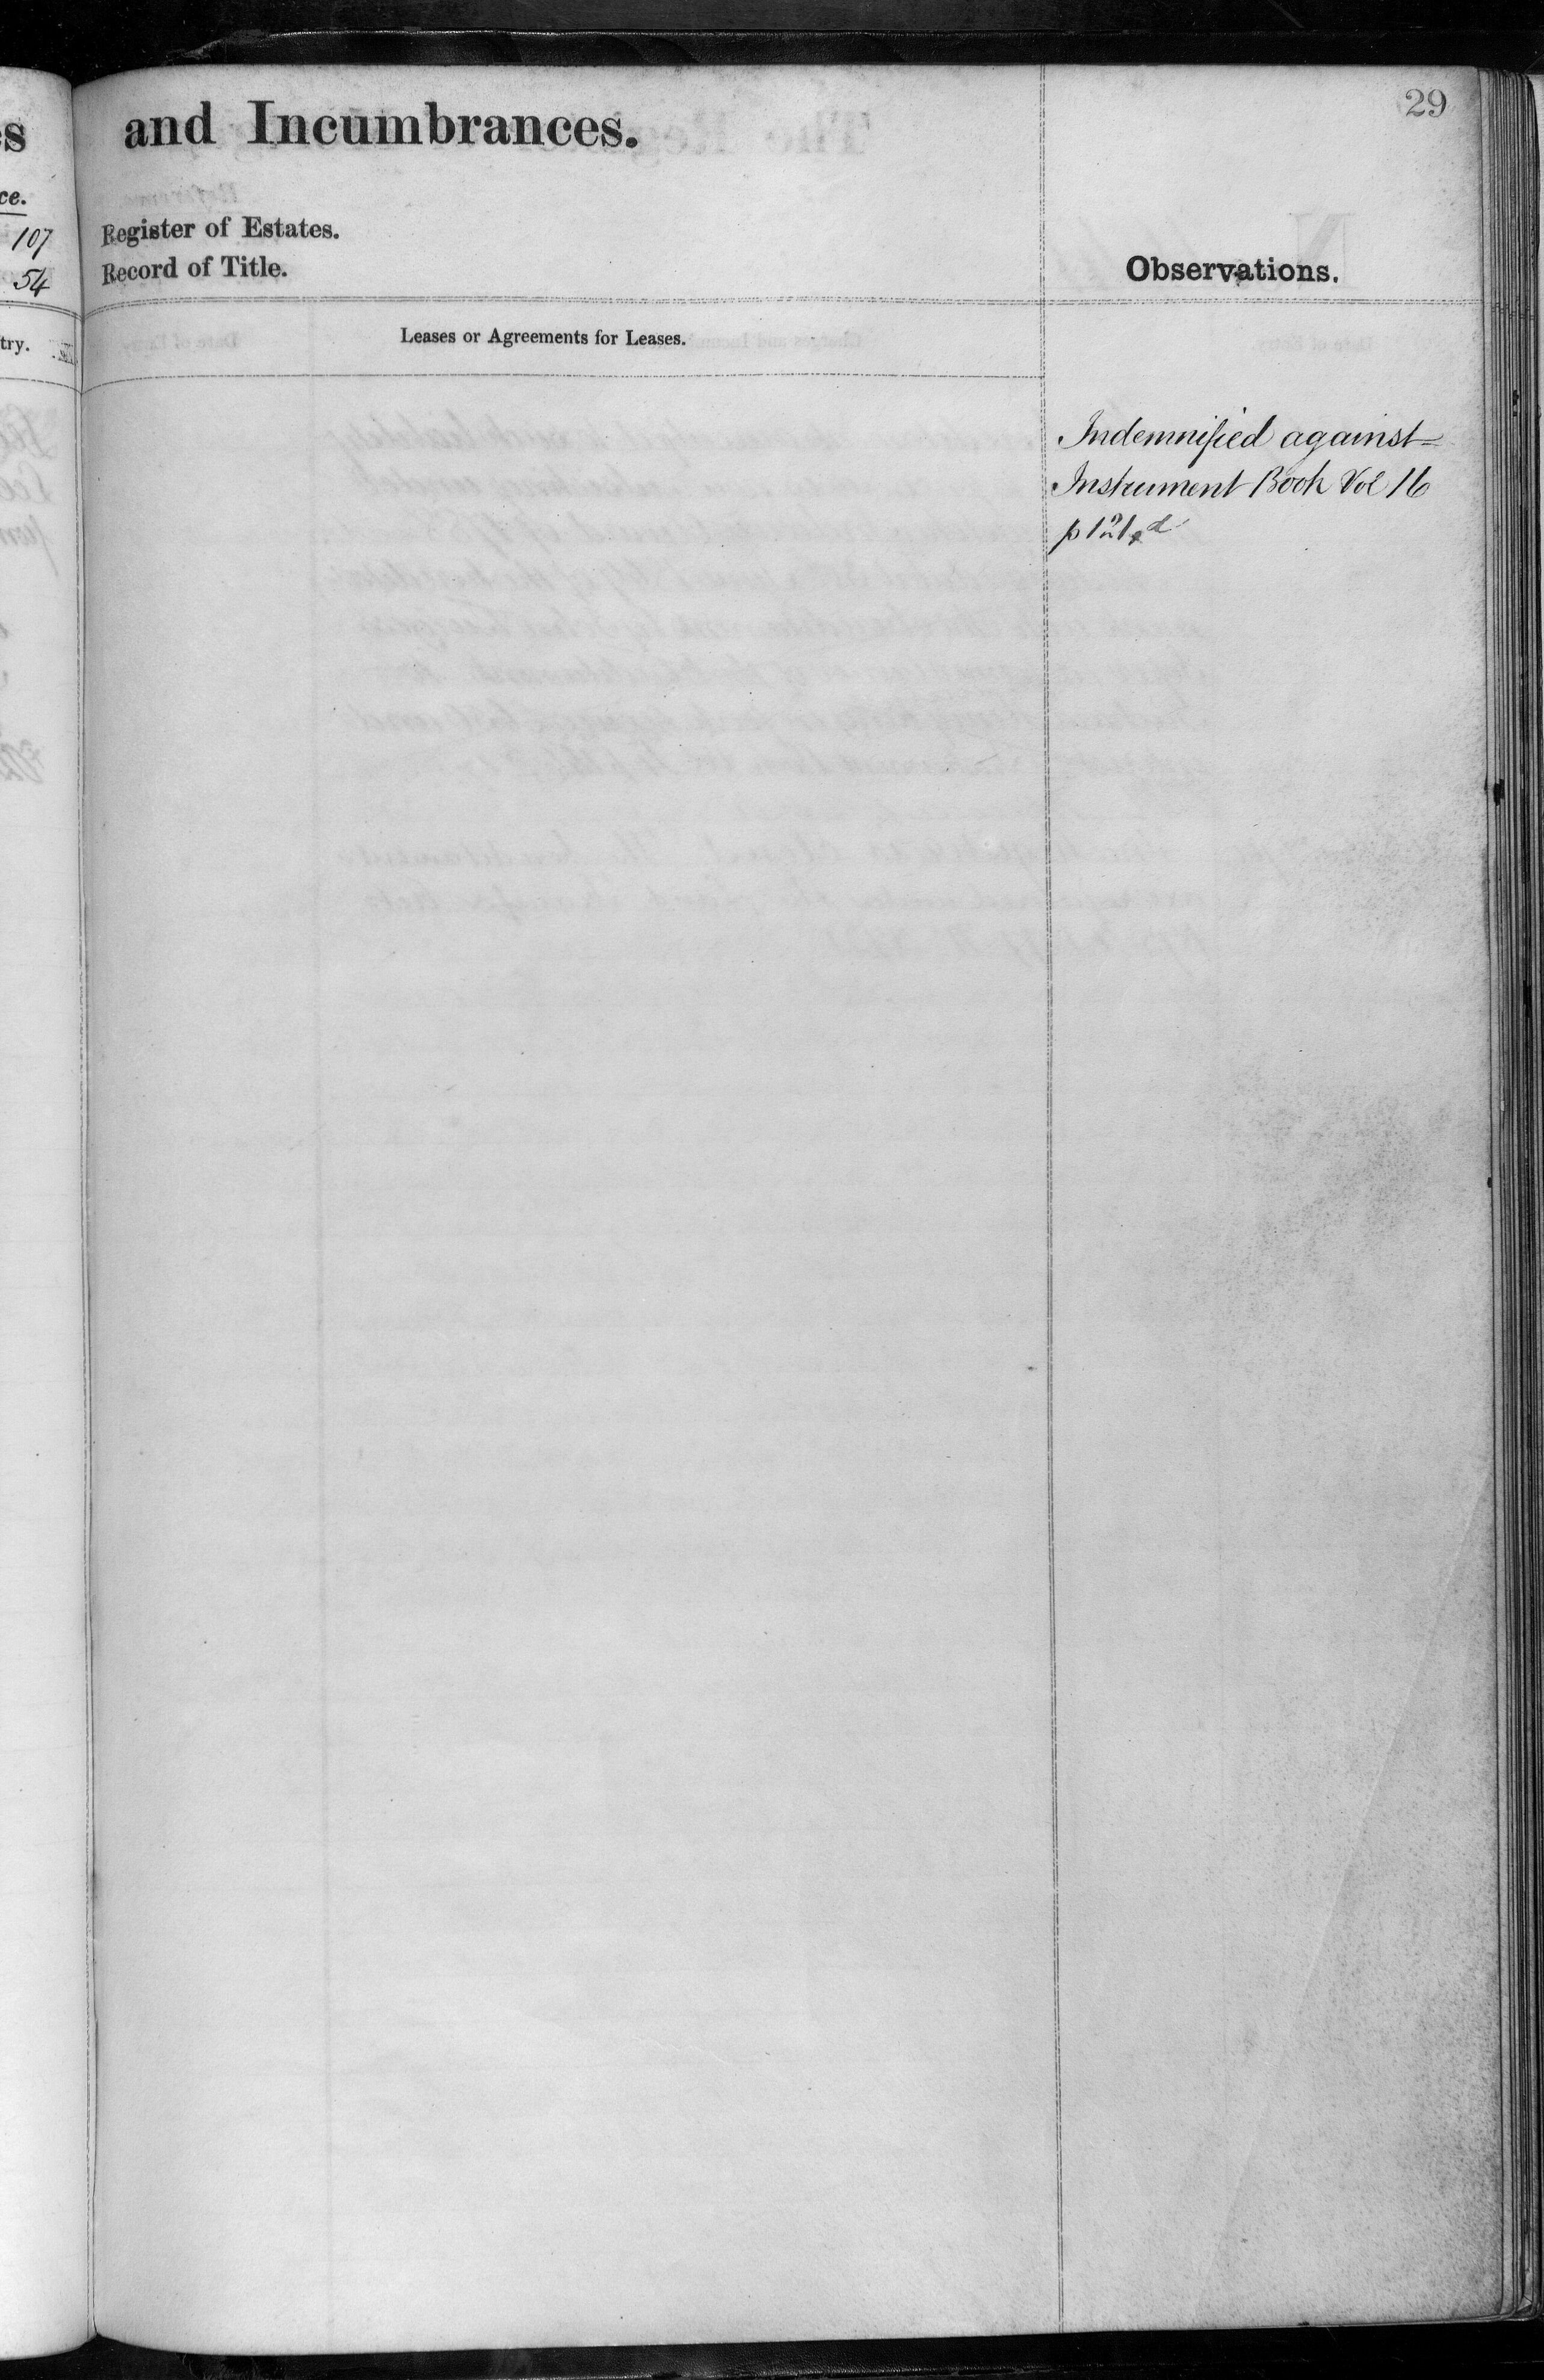 29
and Incumbrances.
ce.
107 Register of Estates.
54 Record of Title.
Observations.
try.
Leases or Agreements for Leases.
Indemnified against
Instrument Book Vol 16
p 121